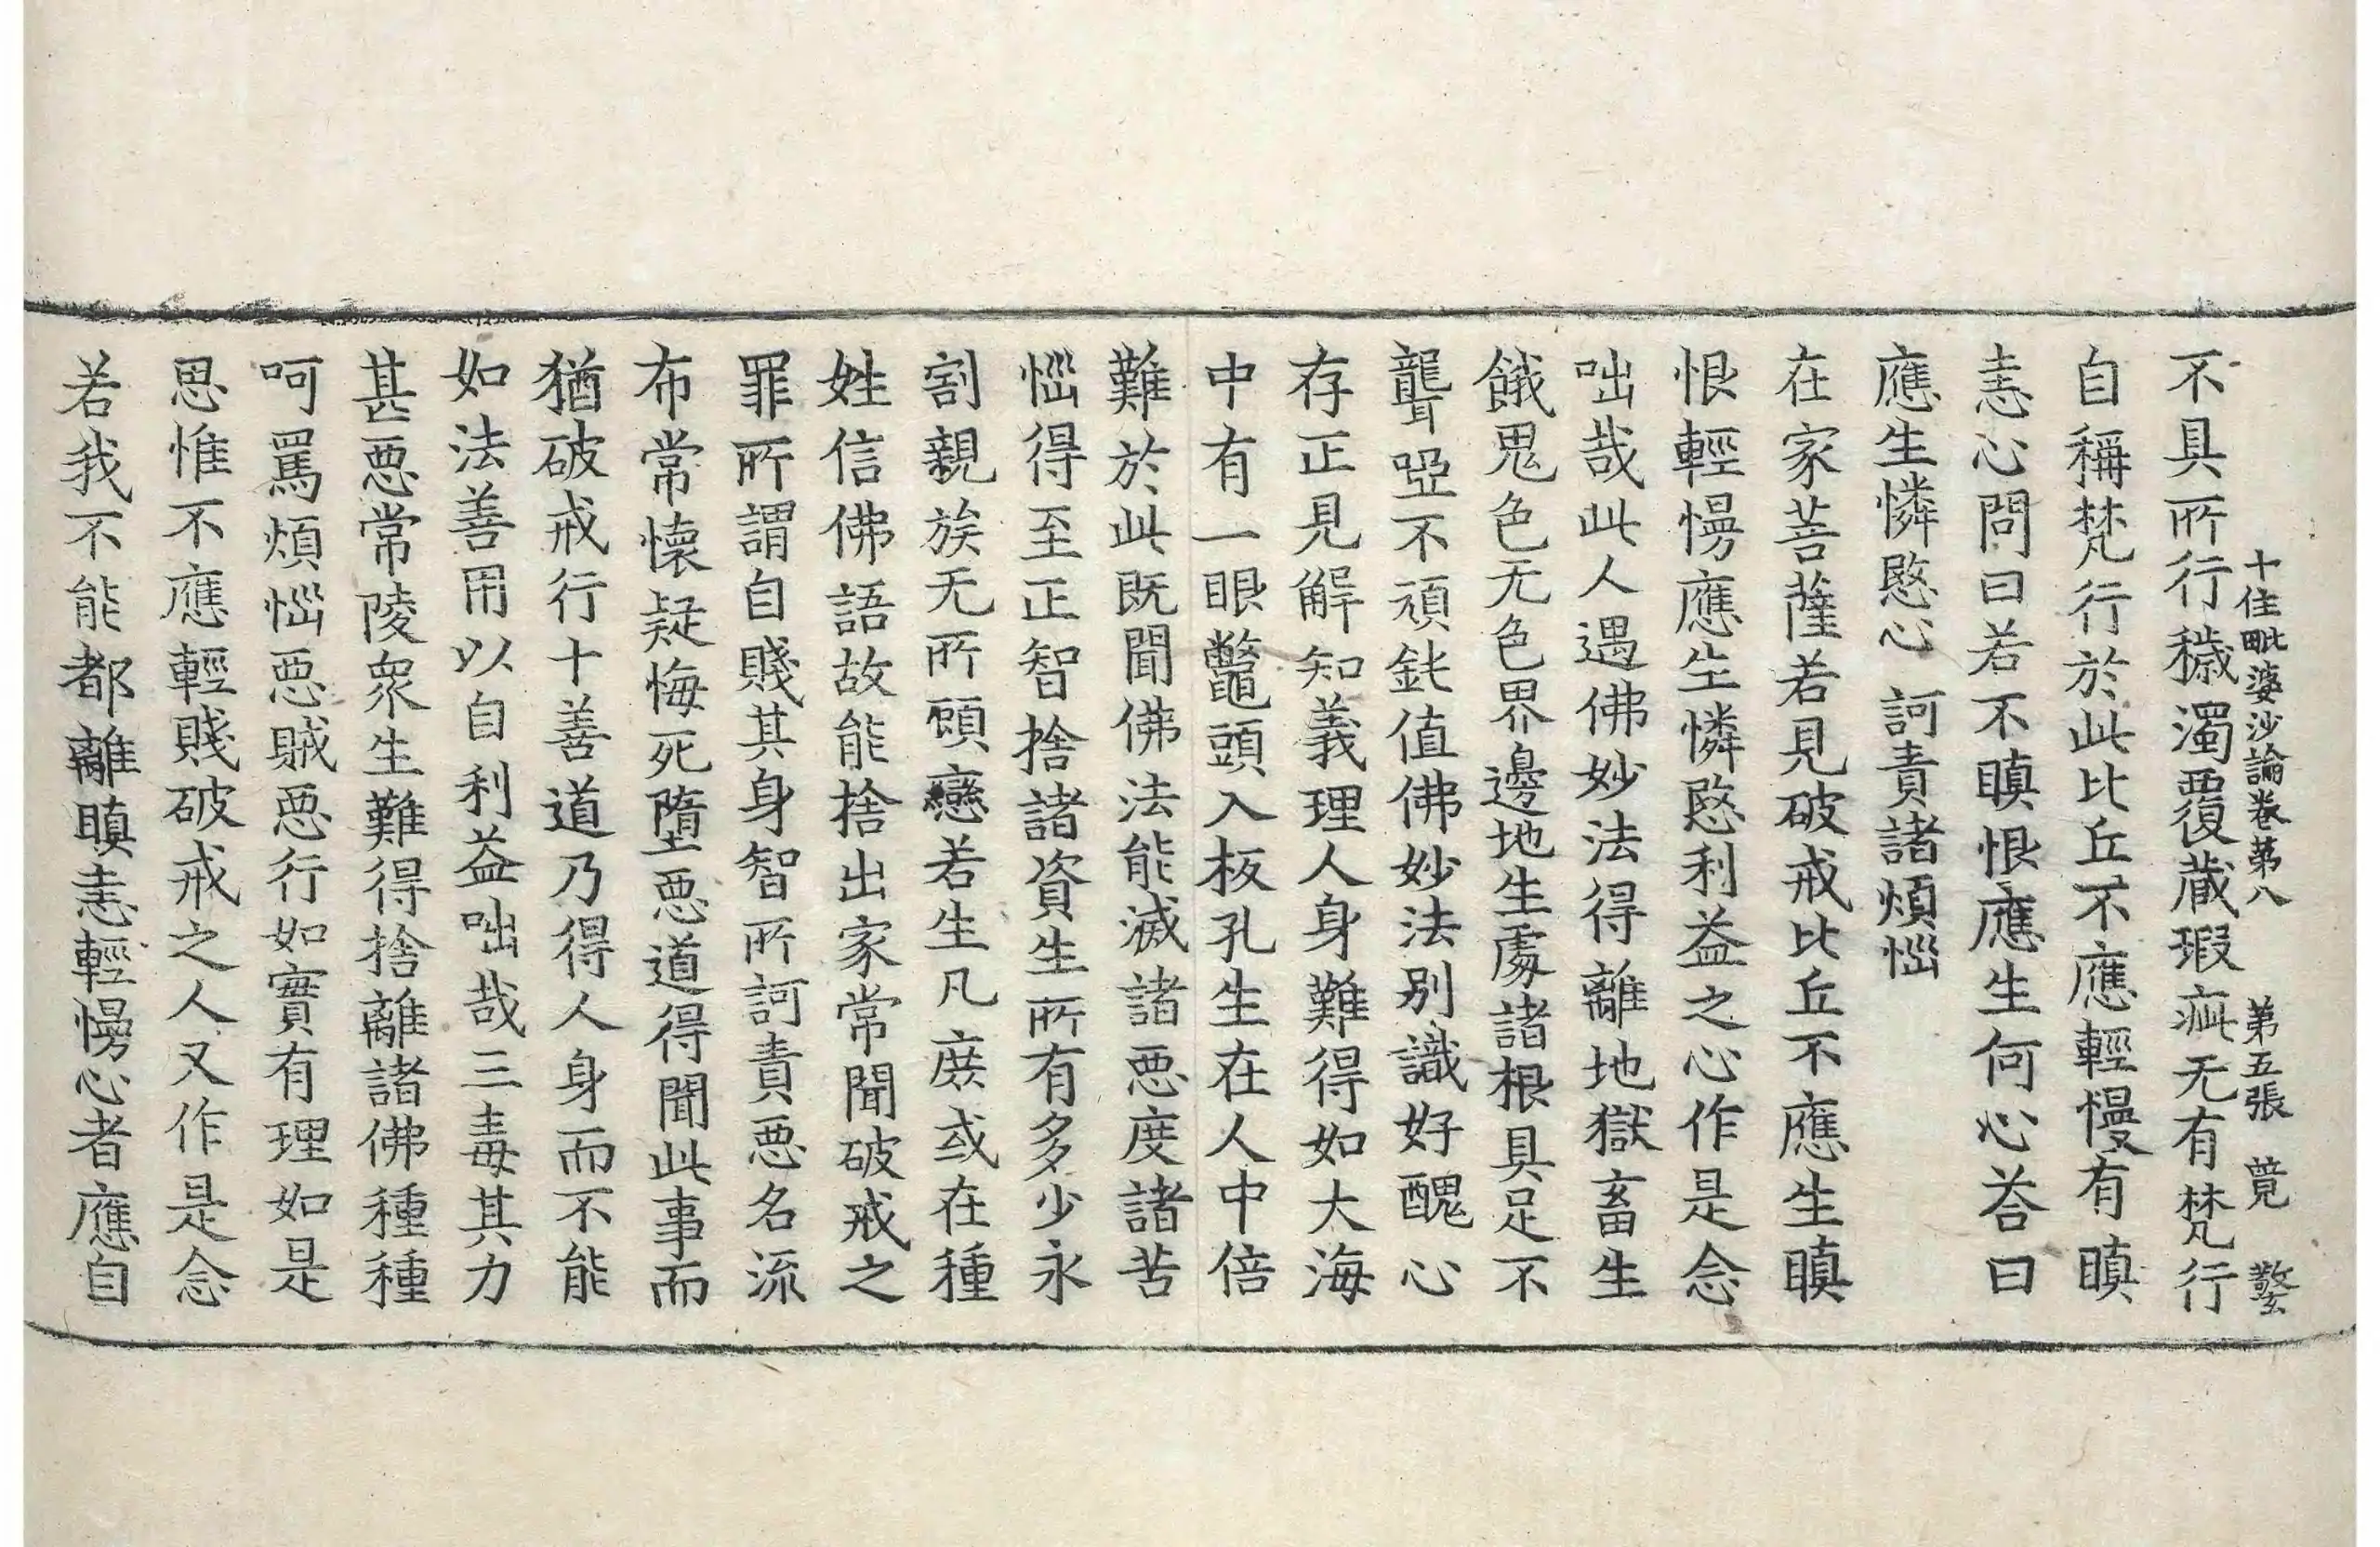 十住毗婆沙論卷第八　第五張　蕳　㜸
不具所行穢濁覆藏瑕疵无有梵行
自稱梵行於此比丘不應輕慢有瞋
恚心問曰若不瞋恨應生何心荅曰
應生憐愍心　訶責諸煩惱
在家菩薩若見破戒比丘不應生瞋
恨輕慢應生憐愍利益之心作是念
咄哉此人遇佛妙法得離地獄畜生
餓鬼色无色界邊地生處諸根具足不
聾啞不頑鈍值佛妙法别識好醜心
存正見解知義理人身難得如大海
中有一眼鼈頭入板孔生在人中倍
難於此既聞佛法能滅諸惡度諸苦
惱得至正智捨諸資生所有多少永
割親族无所顧戀若生凡庶或在種
姓信佛語故能捨出家常聞破戒之
罪所謂自賤其身智所訶責惡名流
布常懷疑悔死墮惡道得聞此事而
猶破戒行十善道乃得人身而不能
如法善用以自利益咄哉三毒其力
甚惡常陵衆生難得捨離諸佛種種
呵罵煩惱惡賊惡行如實有理如是
思惟不應輕賤破戒之人又作是念
若我不能都離瞋恚輕慢心者應自